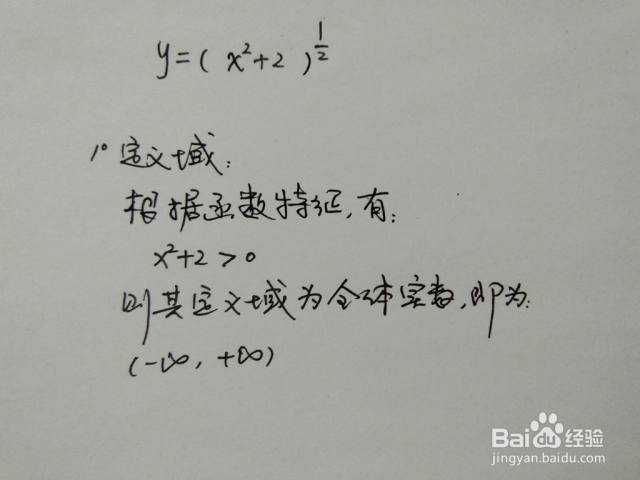 y=(x²+2)^{1/2}
1° 定义域:
根据函数特征,有:
x²+2>0
则其定义域为全体实数,即为:
(-∞,+∞)
Baidu经验
jingyan.baidu.com